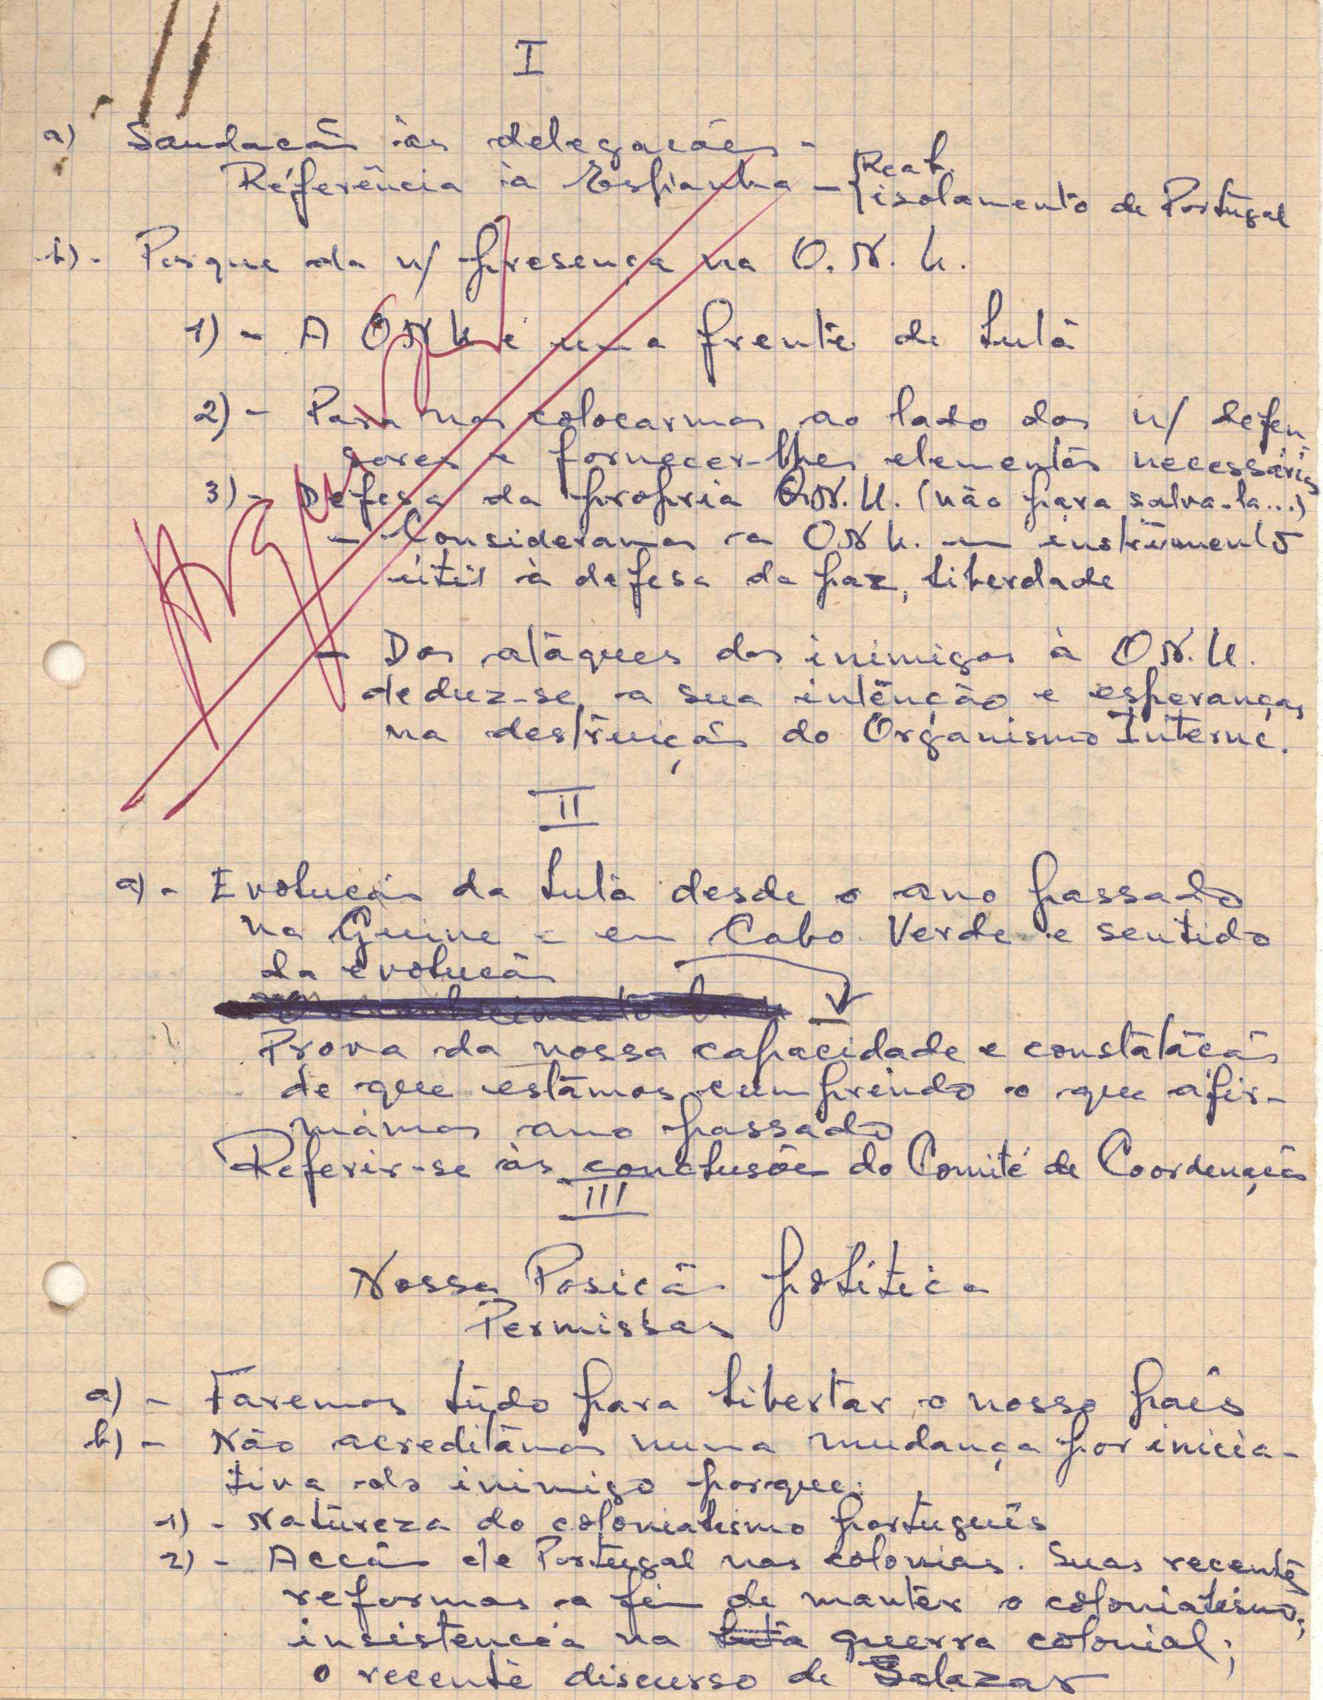 I
a) Saudação às delegações -
Referência à Espanha - { Reaf.
isolamento de Portugal
b) - Porque da n/ presença na O.N.U.
1) - A ONU é uma frente de luta
2) - Para nos colocarmos ao lado dos n/ defen
sores e fornecer-lhes elementos necessários
3) - Defesa da própria O.N.U. (não para salva-la...)
- Consideramos a O.N.U. um instrumento
útil à defesa da paz, liberdade
- Dos atáques dos inimigos à O.N.U.
deduz-se a sua intenção e esperanças
na destruição do Organismo Internc.
II
a) - Evolução da luta desde o ano passado
na Guiné e em Cabo Verde e sentido
da evolução
Prova da nossa capacidade e constatação
de que estamos cumprindo o que afir-
mámos ano passado
Referir-se às conclusões do Comité de Coordenação
III
Nossa Posição política
Permissas
a) - Faremos tudo para libertar o nosso país
b) - Não acreditâmos numa mudança por inicia-
tiva do inimigo porque:
1) - Natureza do colonialismo português
2) - Acção de Portugal nas colonias. Suas recentes
reformas a fim de mantêr o colonialismo;
insistência na luta guerra colonial;
o recente discurso de Salazar